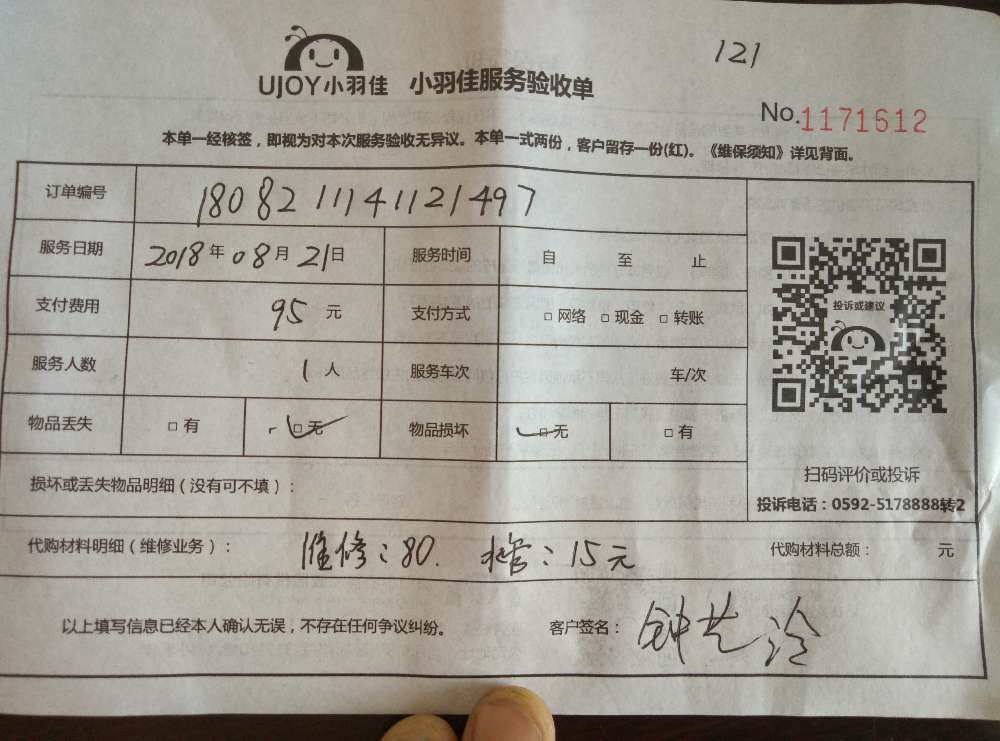 121
UJOY小羽佳 小羽佳服务验收单
No.1171612
本单一经核签，即视为对本次服务验收无异议。本单一式两份，客户留存一份(红)。《维保须知》详见背面。
订单编号 180821114112149７
服务日期 2018年08月21日 服务时间 自 至 止
支付费用 95元 支付方式 □网络 □现金 □转账
投诉或建议
服务人数 1人 服务车次 车/次
物品丢失 □有 □无 物品损坏 □无 □有
扫码评价或投诉
损坏或丢失物品明细（没有可不填）：
投诉电话：0592-5178888转2
代购材料明细（维修业务）： 维修：80. 水管：15元 代购材料总额： 元
以上填写信息已经本人确认无误，不存在任何争议纠纷。 客户签名： 钟艺泠